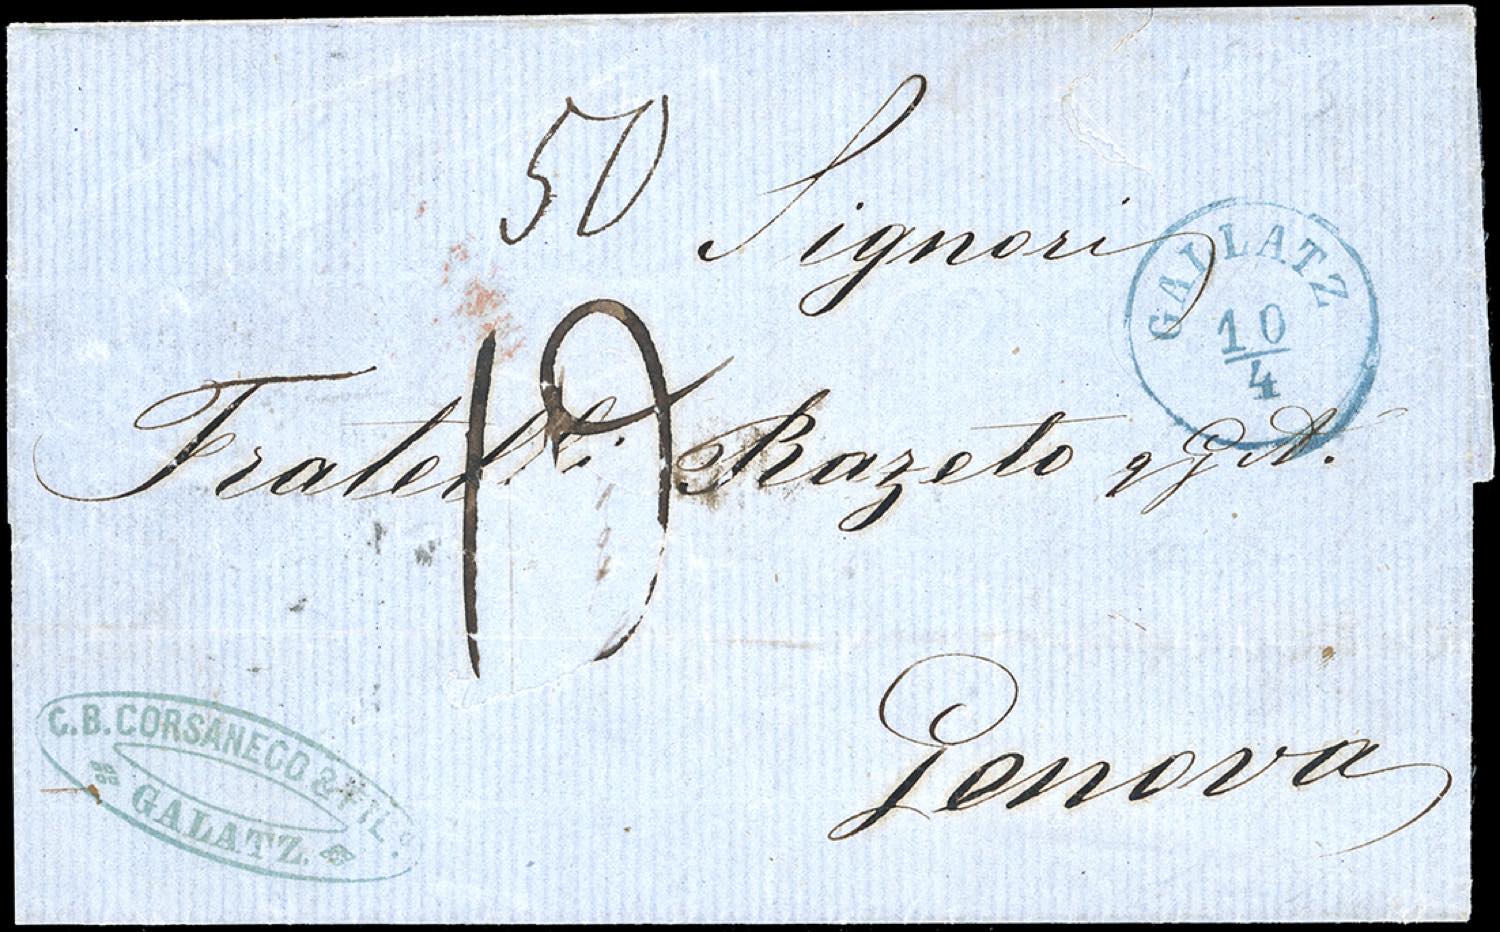 50
Signori
GALLATZ
10
4
Fratelli Razeto
19
Genova
C.B. CORSANEGO & FIL.º
GALATZ.